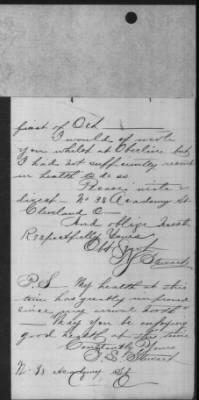 first of Oct
I would of wrote
you whilst at Oberlin but
I had not sufficiently
in health to do so
Please
direct - No 38 Academy St
Cleveland O
And oblige
Respectfully Yours
Obt Servt
Stewart
P.S. My health at this
time has greatly improved
since
May you be enjoying
good health at this time
Constantly Yours
Stewart
Academy St